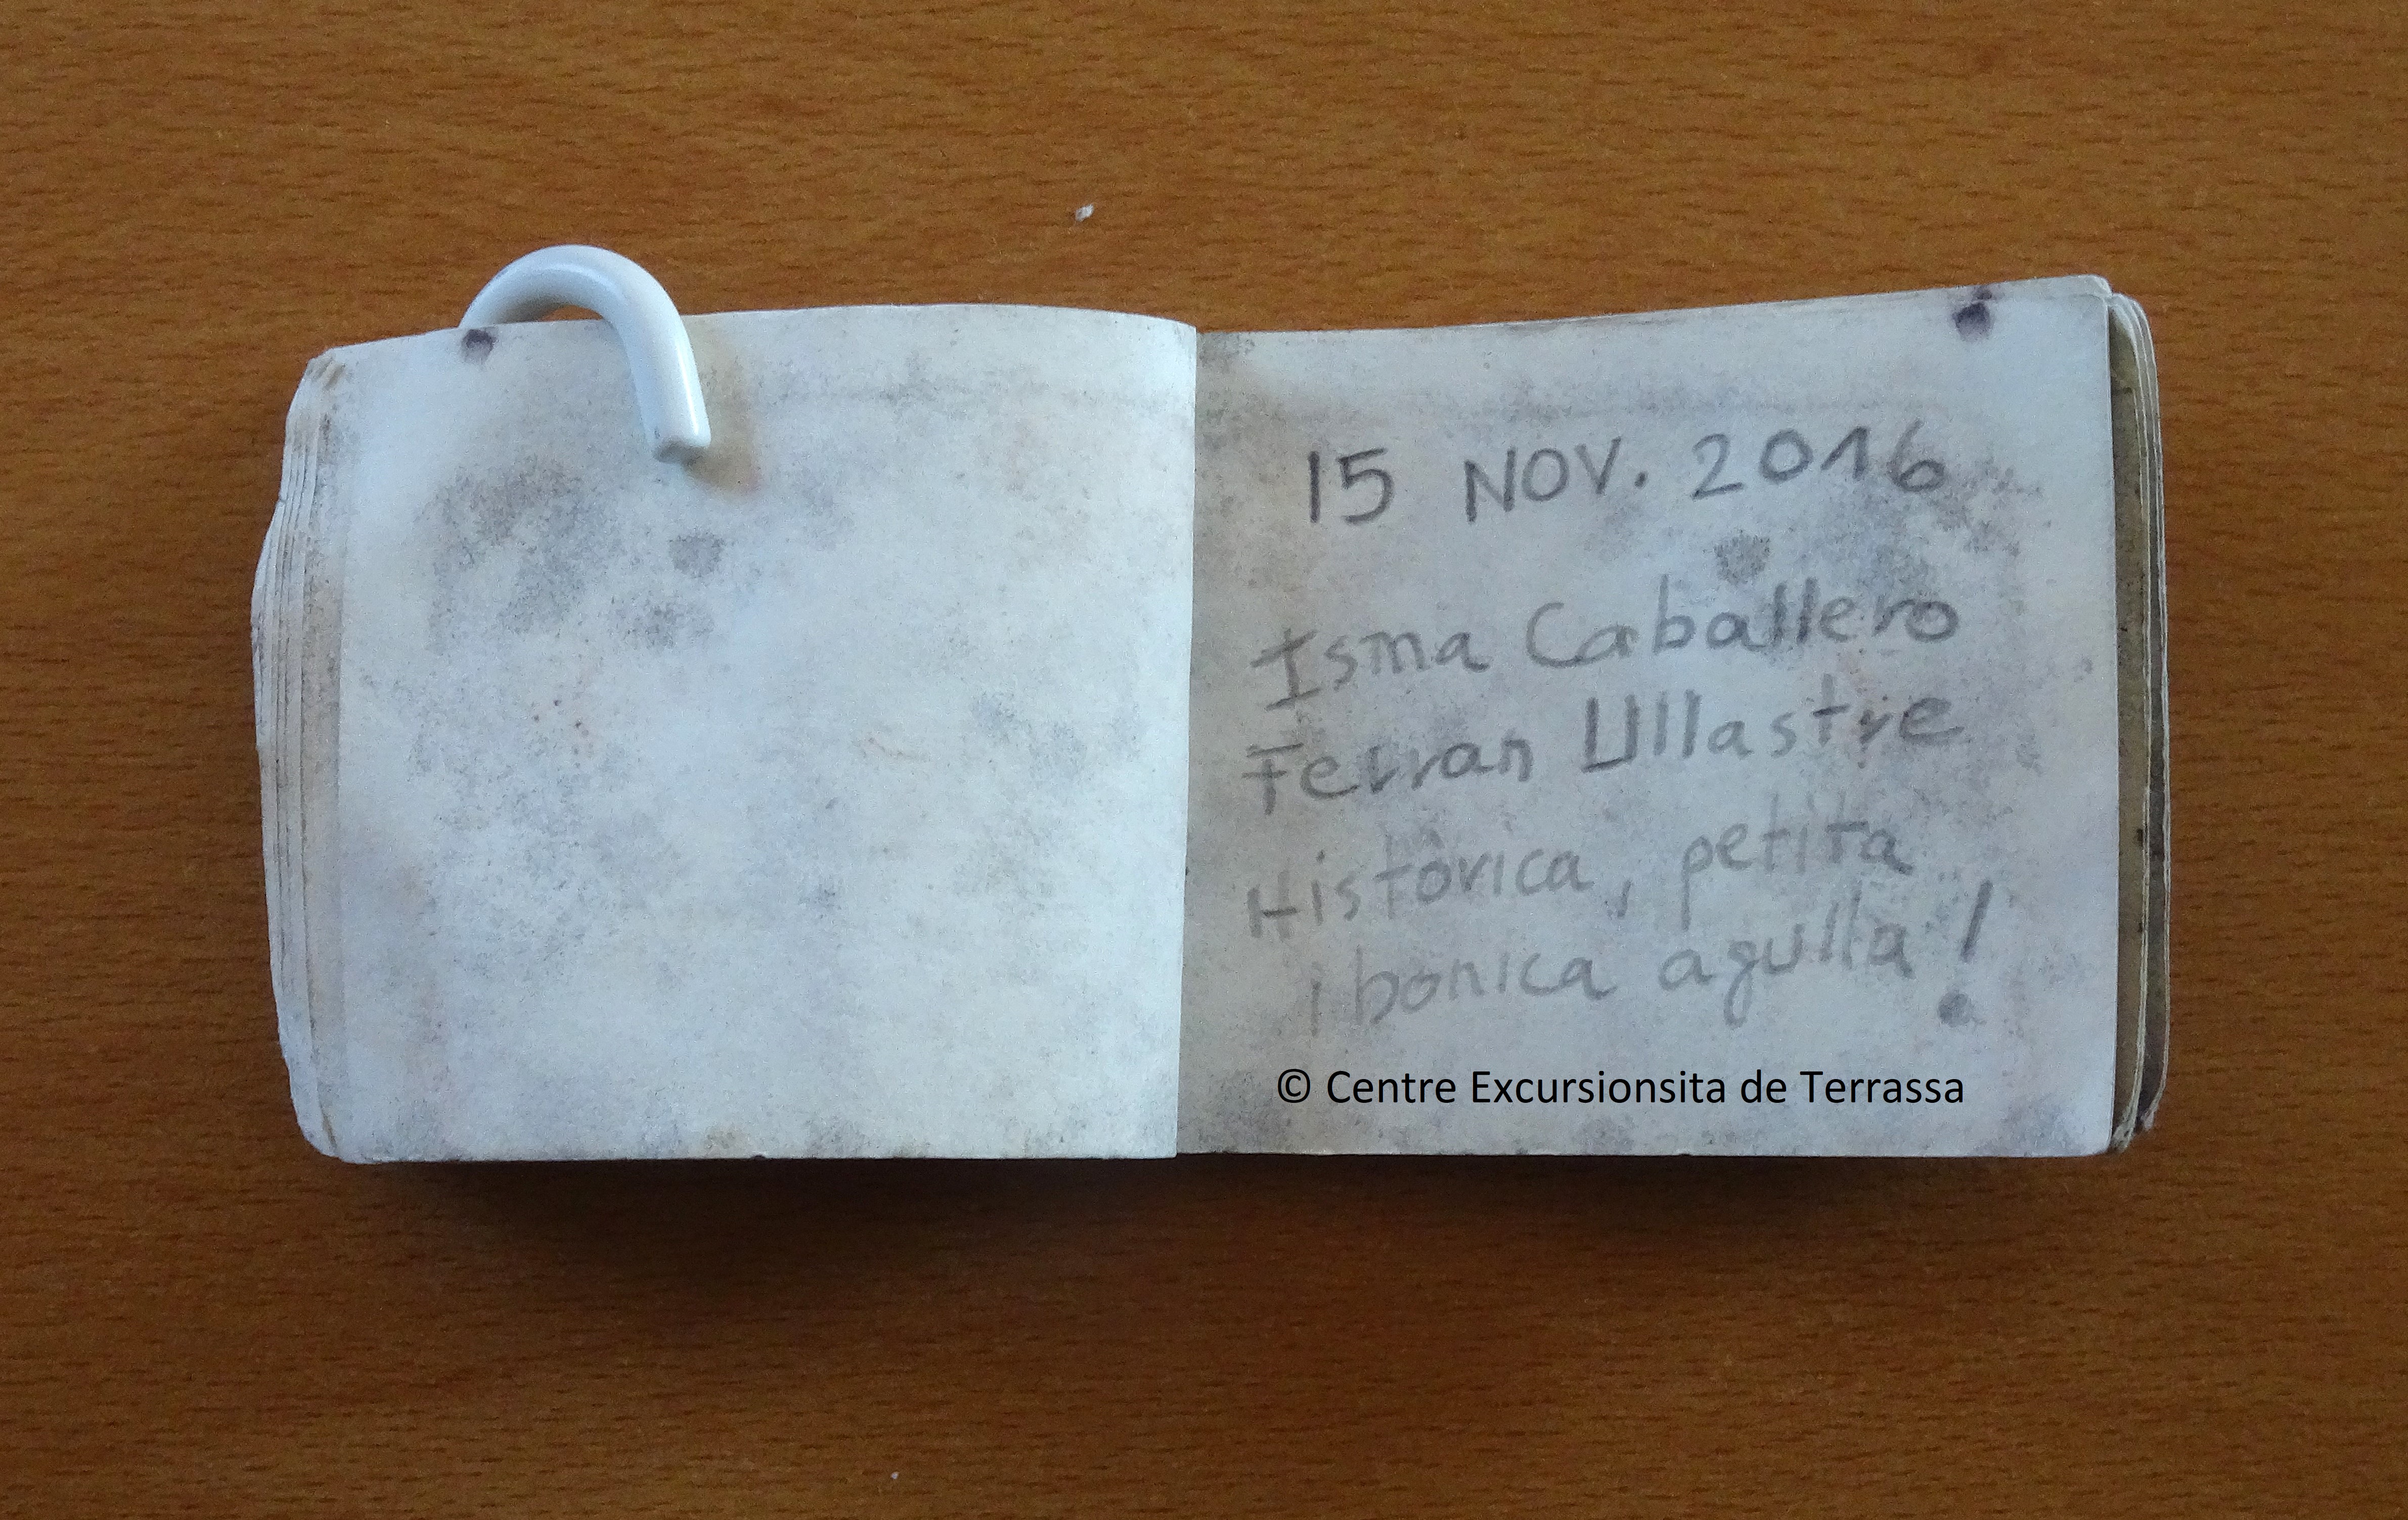 15 NOV. 2016
Isma Caballero
Ferran Ullastre
Històrica, petita
i bonica agulla!
© Centre Excursionsita de Terrassa